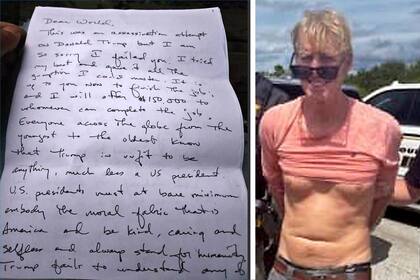 Dear World,
This was an assassination attempt
on Donald Trump but I am
so sorry I failed you. I tried
my best and gave it all the
gumption I could muster. It
is up to you now to finish the job;
and I will offer $150,000 to
whomever can complete the job.
Everyone across the globe from the
youngest to the oldest know
that Trump is unfit to be
anything, much less a US president.
U.S. presidents must at bare minimum
embody the moral fabric that is
America and be kind, caring and
selfless and always stand for humanity.
Trump fails to understand any of